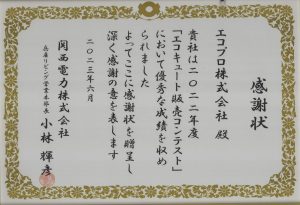 感謝状
エコプロ株式会社 殿
貴社は二〇二二年度
「エコキュート販売コンテスト」
において優秀な成績を収め
られました
よってここに感謝状を贈呈し
深く感謝の意を表します
二〇二三年六月
関西電力株式会社
兵庫リビング営業本部長
小林 輝彦